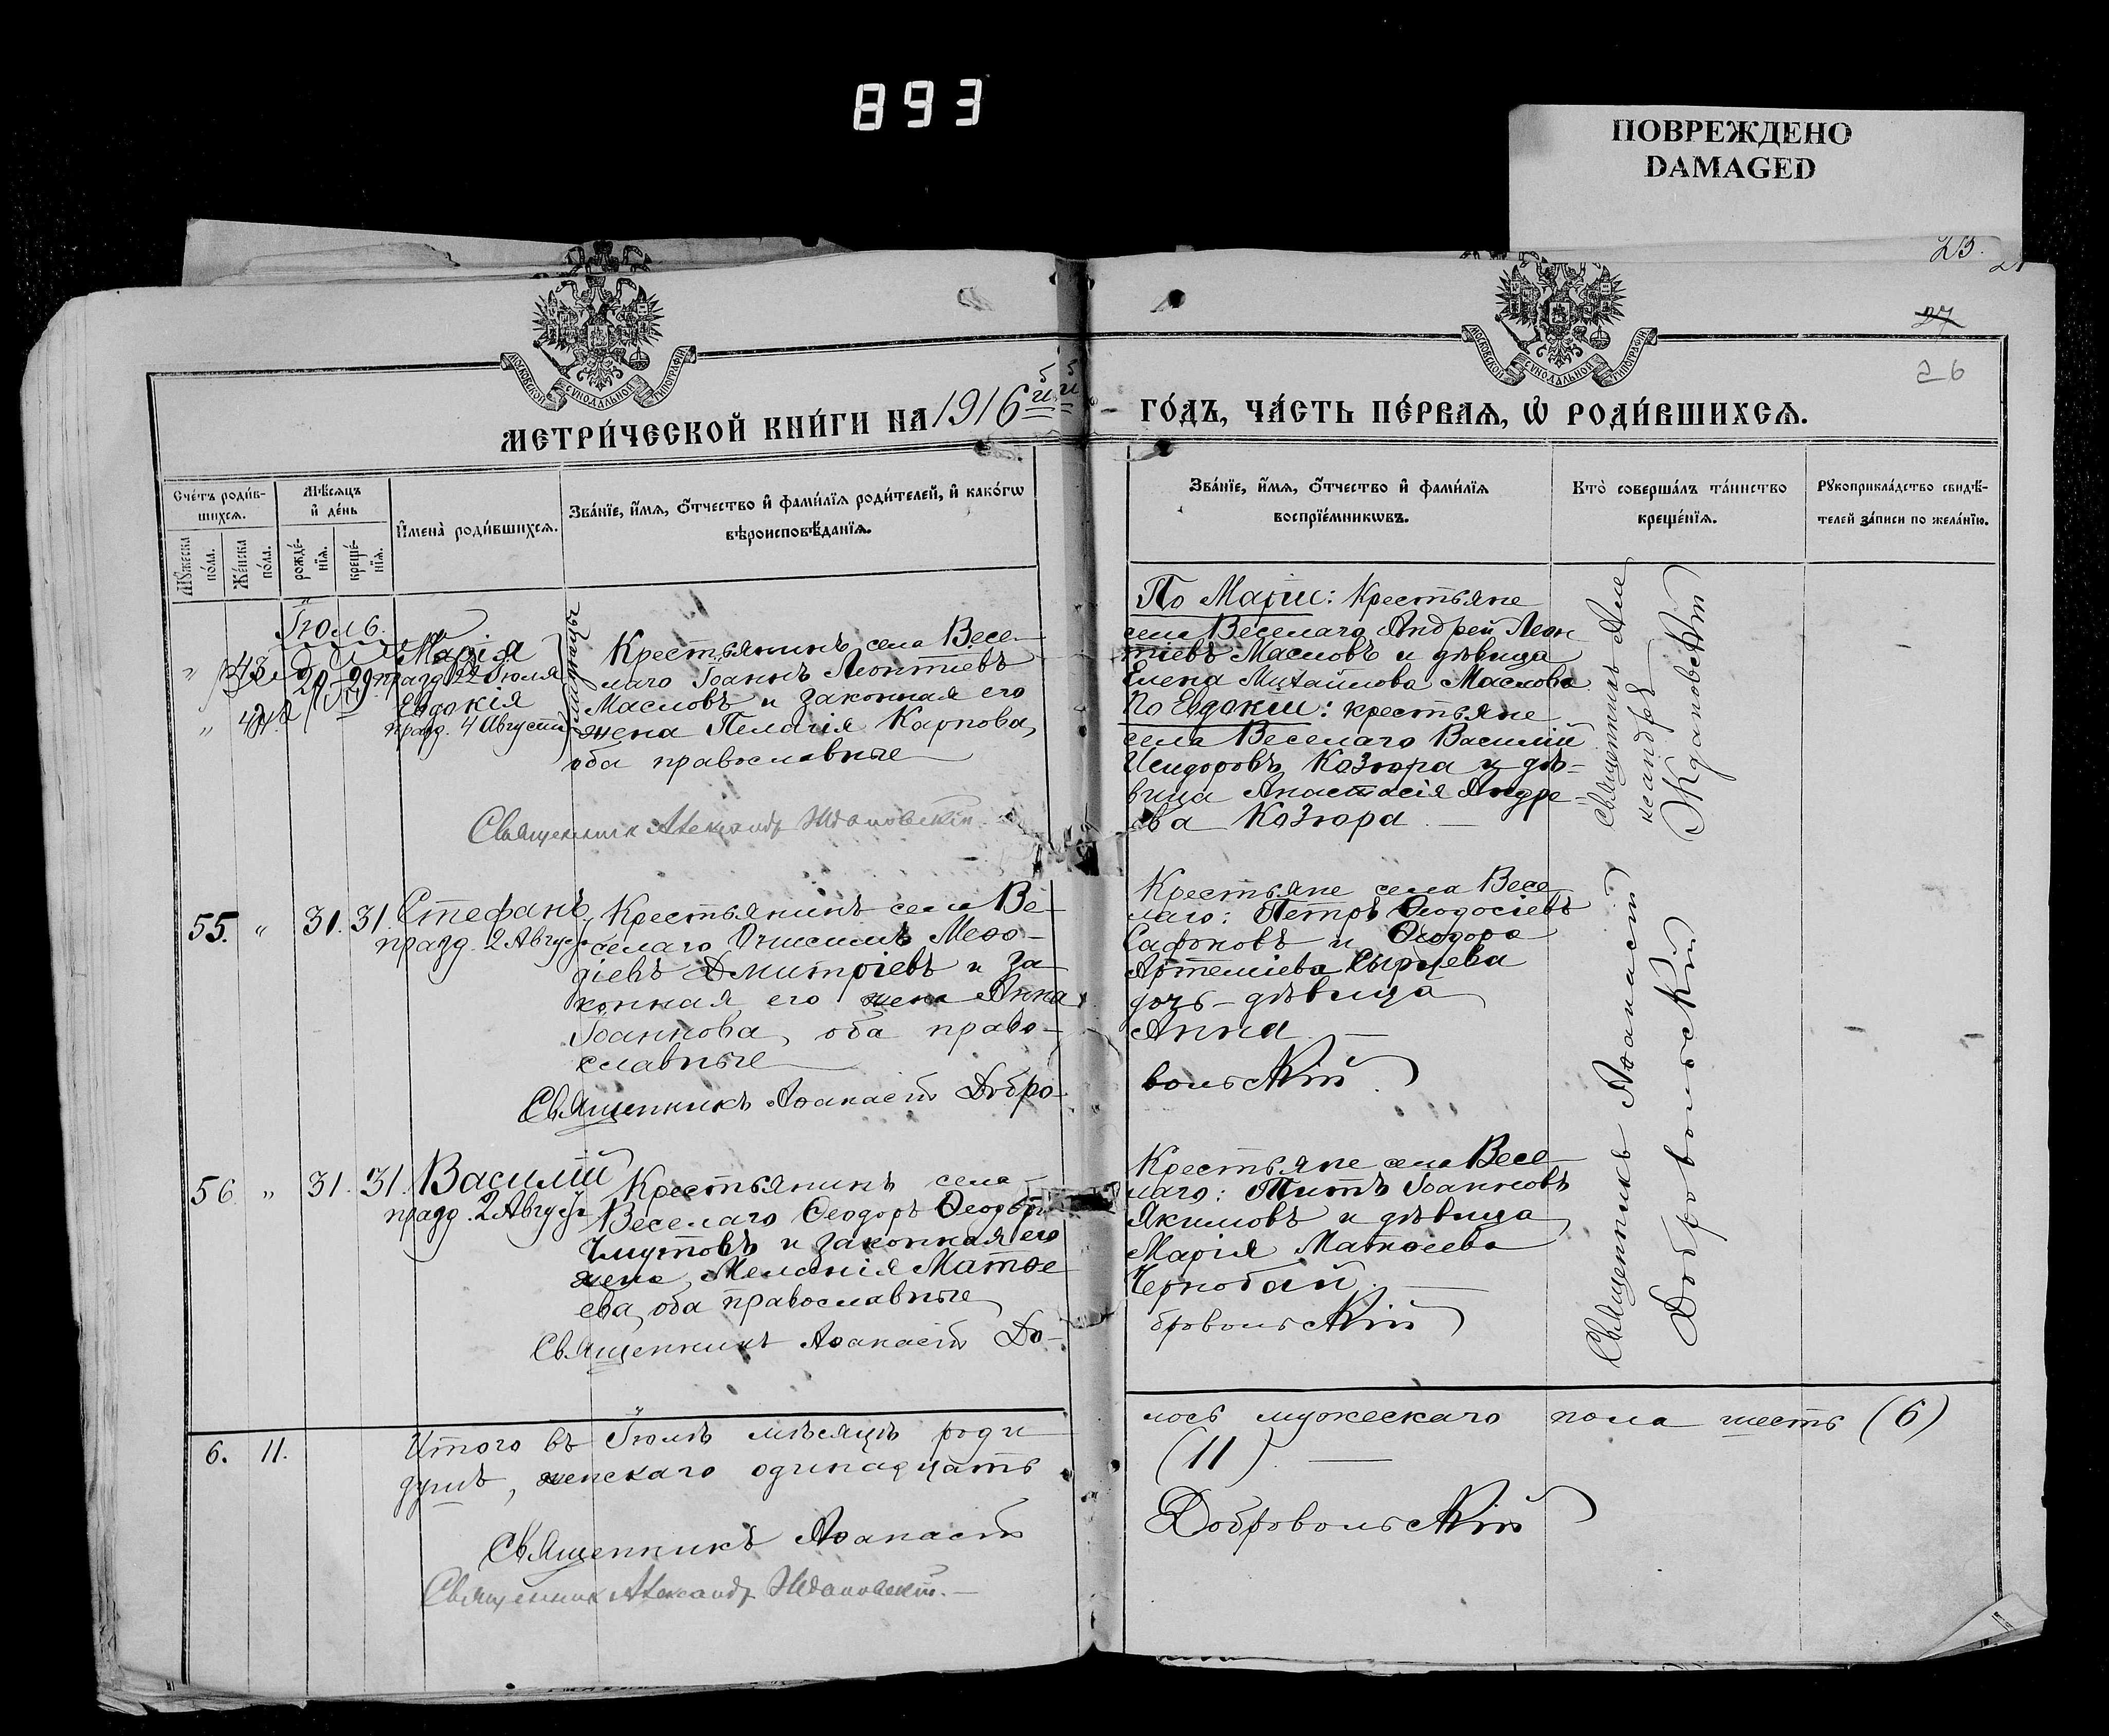 893
ПОВРЕЖДЕНО
DAMAGED
23.
27
26
МОСКОВСКОЙ СѴНОДАЛЬНОЙ ТИПОГРАФІИ
МОСКОВСКОЙ СѴНОДАЛЬНОЙ ТИПОГРАФІИ
МЕТРИ́ЧЕСКОЙ КНИ́ГИ НА 1916й
ГО́ДЪ, ЧА́СТЬ ПЕ́РВАѦ, Ѡ҆ РОДИ́ВШИХСѦ.
Сче́тъ роди́в-
шихсѧ.
Мꙋ́жеска
по́ла.
Же́нска
по́ла.
Мѣ́сѧцъ
и҆ де́нь
рожде́-
нїѧ.
креще́-
нїѧ.
И҆мена̀ роди́вшихсѧ.
Зва́нїе, и҆́мѧ, ѻ҆́тчество и҆ фами́лїѧ роди́телей, и҆ како́гѡ
вѣроисповѣ́данїѧ.
Зва́нїе, и҆́мѧ, ѻ҆́тчество и҆ фами́лїѧ
воспрїе́мникѡвъ.
Кто̀ соверша́лъ та́инство
креще́нїѧ.
Рꙋкоприкла́дство свидѣ́-
телей за́писи по жела́нїю.
Іюль.
" 43 29 29 Марія
празд. 22 Іюля
Евдокія
" празд. 4 Августа
Крестьянинъ села Весе-
лаго Іоаннъ Леонтіевъ
Масловъ и законная его
жена Пелагія Карпова,
оба православные
Священник Александр Ждановский
По Маріи: Крестьяне
села Веселаго Андрей Леон
тіевъ Масловъ и дѣвица
Елена Михайлова Маслова
По Евдокіи: крестьяне
села Веселаго Василій
Исидоровъ Козюра и дѣ=
вица Анастасія Андре=
ева Козюра —
Священникъ Але
ксандръ
Ждановскій
55. " 31. 31. Стефанъ
празд. 2 Август
Крестьянинъ села Ве-
селаго Онисимъ Меѳо-
діевъ Дмитріевъ и за-
конная его жена Анна
Іоаннова, оба право-
славные
Священникъ Аѳанасій Добро-
Крестьяне села Весе
лаго: Петръ Ѳеодосіевъ
Сафоновъ и Ѳеодора
Артеміева Сырцева
дочь - дѣвица
Анна —
вольскій
56 " 31. 31. Василій
празд. 2 Август
Крестьянинъ села
Веселаго Ѳеодоръ Ѳеодоро
Чмутовъ и законная его
жена Меланія Матѳе
ева, оба православные
Священникъ Аѳанасій До-
Крестьяне села Весе
лаго: Титъ Іоанновъ
Якимовъ и дѣвица
Марія Матѳеева
Чернобай. —
бровольскій
Священникъ Аѳанасій
Добровольскій
6. 11. Итого въ Іюлѣ мѣсяцѣ роди
лось мужескаго пола шесть (6)
душъ, женскаго одинадцать
(11). —
Священникъ Аѳанасій
Добровольскій
Священник Александр Ждановский. —